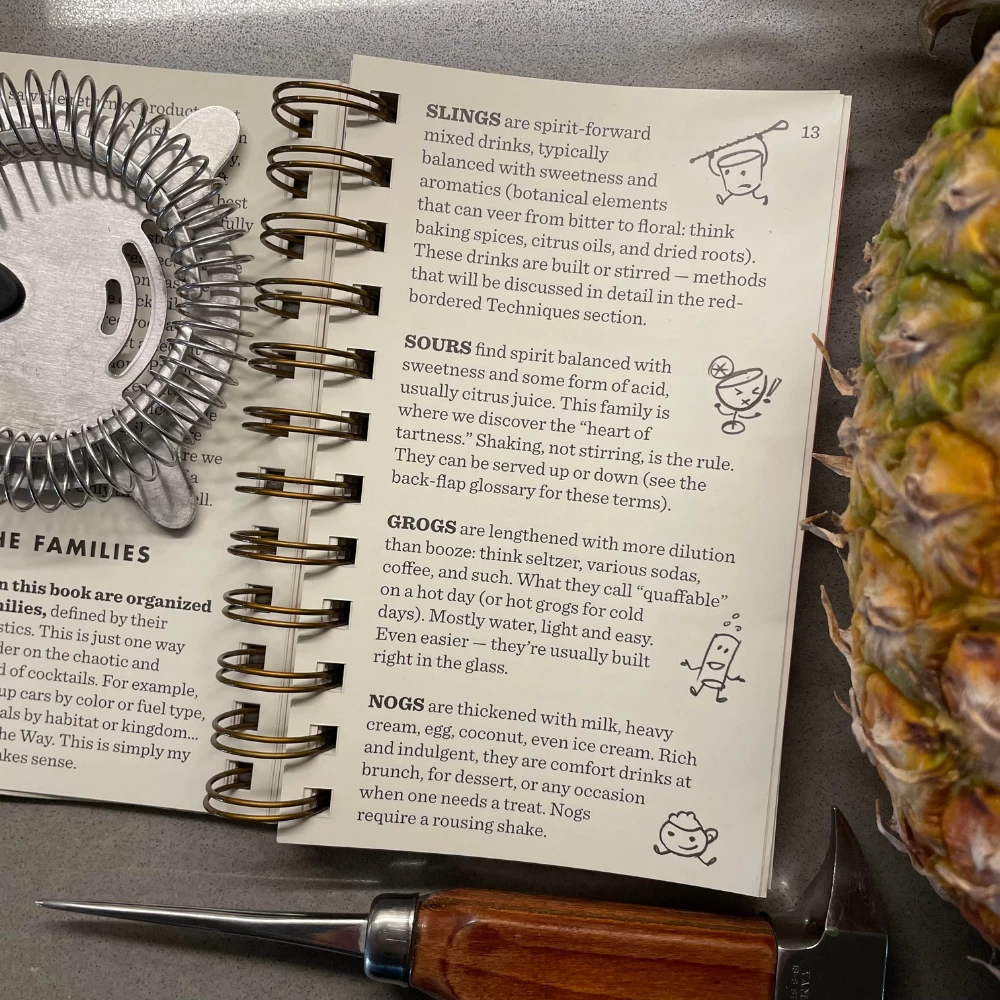 product
best
fully
are we
HE FAMILIES
n this book are organized
milies, defined by their
stics. This is just one way
der on the chaotic and
d of cocktails. For example,
up cars by color or fuel type,
als by habitat or kingdom...
he Way. This is simply my
akes sense.
13
SLINGS are spirit-forward
mixed drinks, typically
balanced with sweetness and
aromatics (botanical elements
that can veer from bitter to floral: think
baking spices, citrus oils, and dried roots).
These drinks are built or stirred — methods
that will be discussed in detail in the red-
bordered Techniques section.
SOURS find spirit balanced with
sweetness and some form of acid,
usually citrus juice. This family is
where we discover the “heart of
tartness.” Shaking, not stirring, is the rule.
They can be served up or down (see the
back-flap glossary for these terms).
GROGS are lengthened with more dilution
than booze: think seltzer, various sodas,
coffee, and such. What they call “quaffable”
on a hot day (or hot grogs for cold
days). Mostly water, light and easy.
Even easier — they’re usually built
right in the glass.
NOGS are thickened with milk, heavy
cream, egg, coconut, even ice cream. Rich
and indulgent, they are comfort drinks at
brunch, for dessert, or any occasion
when one needs a treat. Nogs
require a rousing shake.